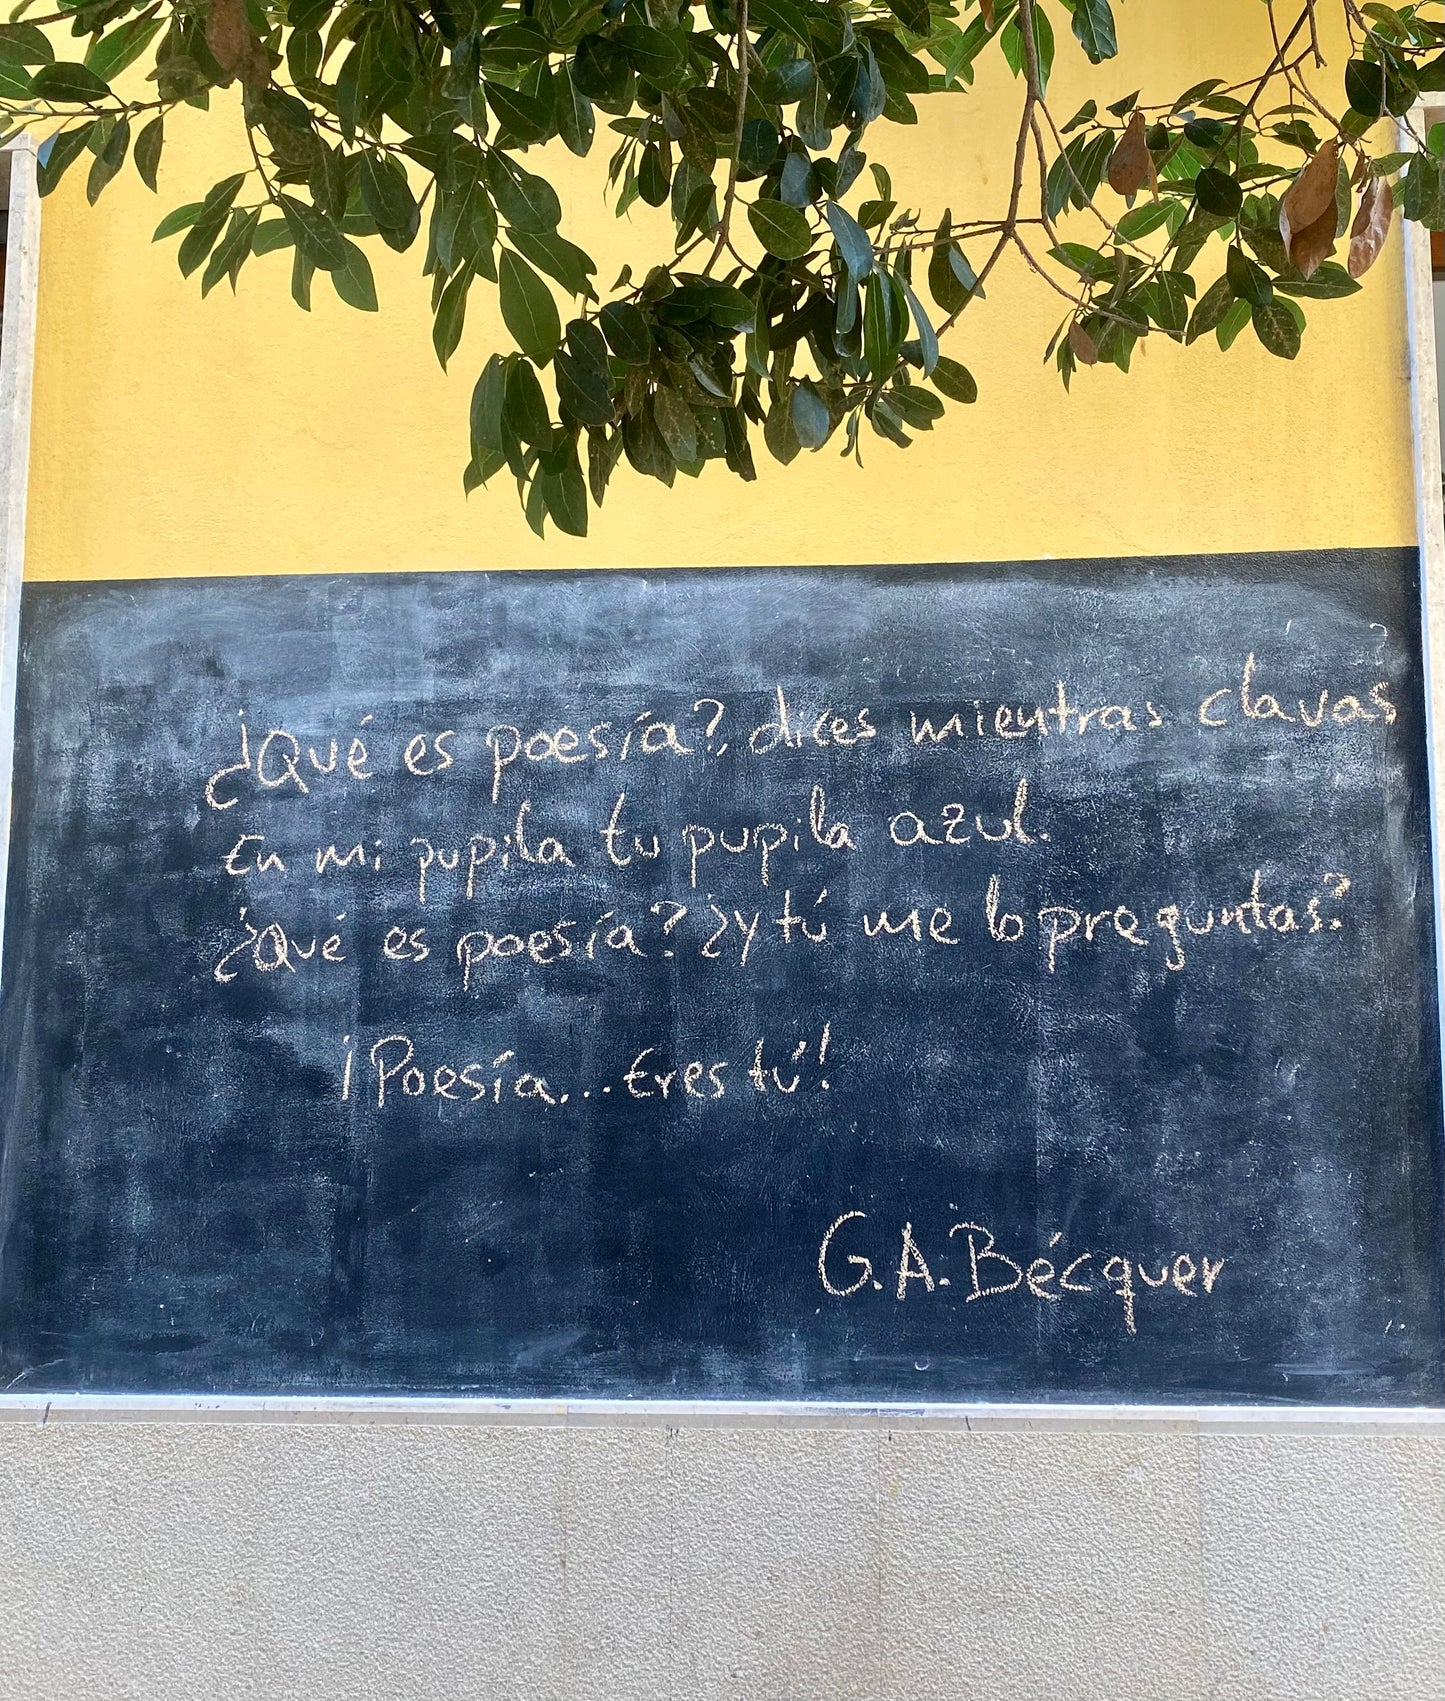 ¿Qué es poesía?, dices mientras clavas
En mi pupila tu pupila azul.
¿Qué es poesía? ¿y tú me lo preguntas?
¡Poesía... Eres tú!
G.A. Bécquer